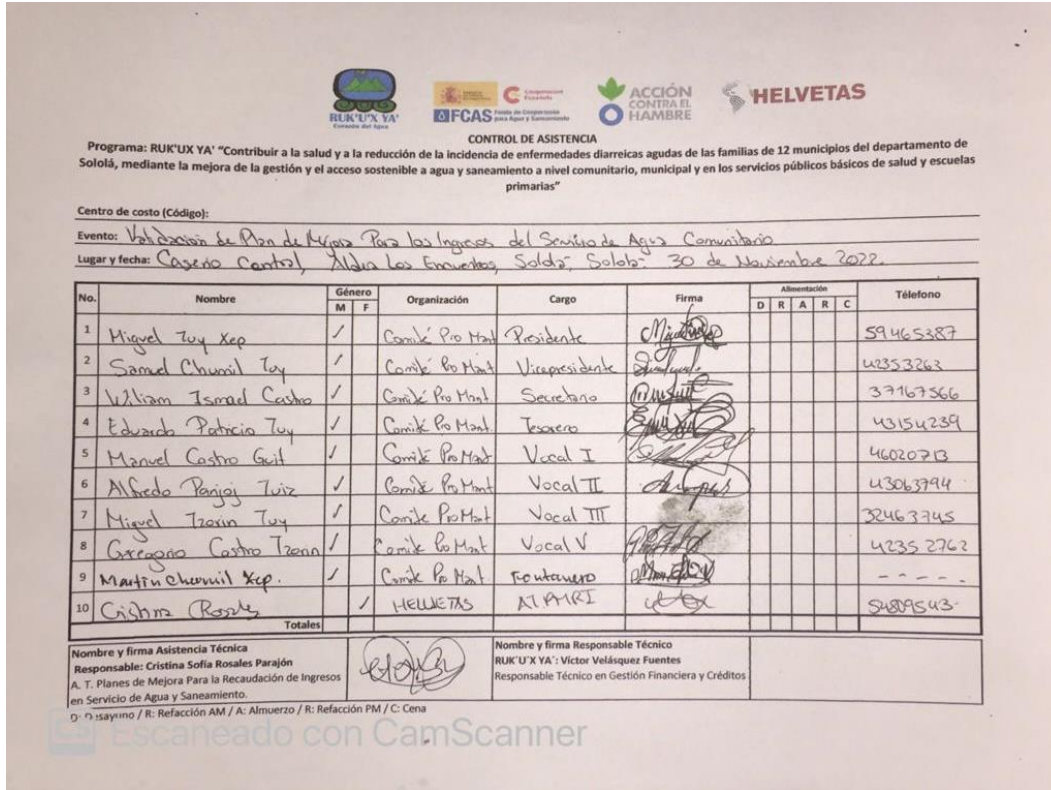 RUK'U'X YA'
Corazón del Agua
Cooperación Española
FCAS Fondo de Cooperación para Agua y Saneamiento
ACCIÓN CONTRA EL HAMBRE
HELVETAS
CONTROL DE ASISTENCIA
Programa: RUK'UX YA' "Contribuir a la salud y a la reducción de la incidencia de enfermedades diarreicas agudas de las familias de 12 municipios del departamento de
Sololá, mediante la mejora de la gestión y el acceso sostenible a agua y saneamiento a nivel comunitario, municipal y en los servicios públicos básicos de salud y escuelas
primarias"
Centro de costo (Código):
Evento: Validación de Plan de Mejora Para los Ingresos del Servicio de Agua Comunitario
Lugar y fecha: Caserio Central, Aldea Los Encuentros, Sololá, Sololá- 30 de Noviembre 2022.
No. Nombre Género Organización Cargo Firma Alimentación Télefono
M F D R A R C
1 Miguel Tuy Xep / Comité Pro Mant Presidente 59465387
2 Samuel Chumil Tuy / Comité Pro Mant Vicepresidente 42353263
3 William Ismael Castro / Comité Pro Mant Secretario 37167566
4 Eduardo Patricio Tuy / Comité Pro Mant. Tesorero 43154239
5 Manuel Castro Guit / Comité Pro Mant Vocal I 46020713
6 Alfredo Panjoj Tuiz / Comité Pro Mant Vocal II 43063794
7 Miguel Tzorin Tuy / Comite Pro Mant Vocal III 32463745
8 Gregorio Castro Tzorin / Comité Pro Mant Vocal V 42352762
9 Martin Chumil Xep. / Comite Pro Mant Fontanero - - - - -
10 Cristina Rosales / HELVETAS AT.PMRI 54809543-
Totales
Nombre y firma Asistencia Técnica
Responsable: Cristina Sofía Rosales Parajón
A. T. Planes de Mejora Para la Recaudación de Ingresos
en Servicio de Agua y Saneamiento.
Nombre y firma Responsable Técnico
RUK'U'X YA': Víctor Velásquez Fuentes
Responsable Técnico en Gestión Financiera y Créditos
D: Desayuno / R: Refacción AM / A: Almuerzo / R: Refacción PM / C: Cena
Escaneado con CamScanner